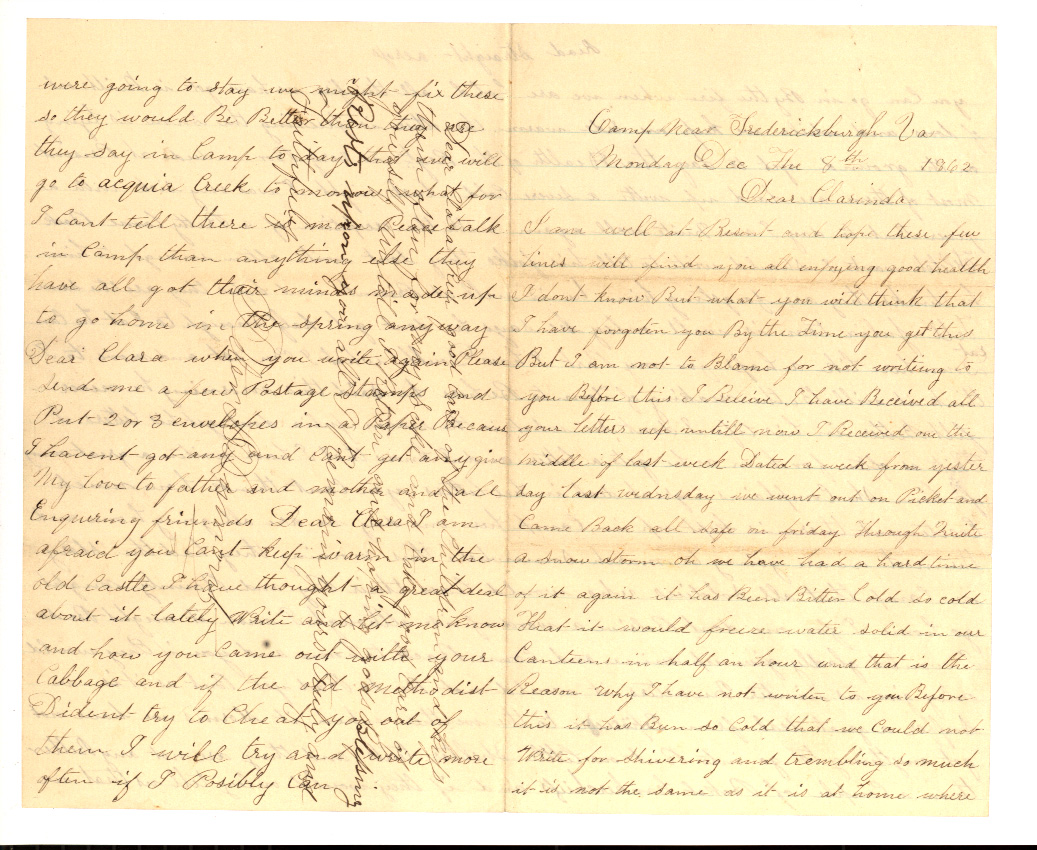 Camp Near Frederickburgh Va
Monday Dec The 8th 1862
Dear Clarinda
I am well at Present and hope these few
lines will find you all enjoying good health
I dont know But what you will think that
I have forgoten you By the Time you get this
But I am not to Blame for not writing to
you Before this I Beceive I have Received all
your letters up untill now I Received one the
middle of last week Dated a week from yester
day last wednsday we went out on Picket and
Came Back all safe on friday Through Quite
a snow storm oh we have had a hard time
of it again it has Been Bitter Cold so cold
That it would freeze water solid in our
Canteens in half an hour and that is the
Reason why I have not writen to you Before
this it has Been so Cold that we Could not
Write for shivering and trembling so much
it is not the same as it is at home where
were going to stay we might fix these
so they would Be Better than they are
they say in Camp to day that we will
go to acquia Creek to morrow what for
I Cant tell there is more Peace talk
in Camp than anything else they
have all got their minds made up
to go home in the spring anyway
Dear Clara when you write again Please
send me a few Postage Stamps and
Put 2 or 3 envelopes in a Paper Because
I havent got any and Cant get any give
My love to father and mother and all
Enquring friends Dear Clara I am
afraid you Cant keep warm in the
old Castle I have thought a great deal
about it lately Write and let me know
and how you Came out with your
Cabbage and if the old methodist
Dident try to Cheat you out of
them I will try and write more
often if I Posibly Can
Dear Clara take good care of the children and keep
them and take good care of
yourself hoping gods Blessing
Rests upon you all I Remain yours truly and
Faithfully